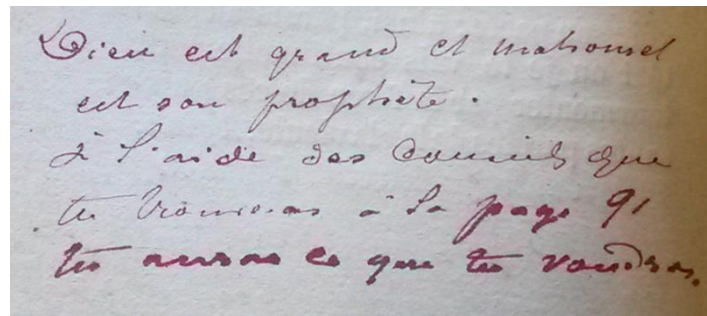 Dieu est grand et mahomet
est son prophète.
à l'aide des conseils que
tu trouveras à la page 91
tu auras ce que tu voudras.